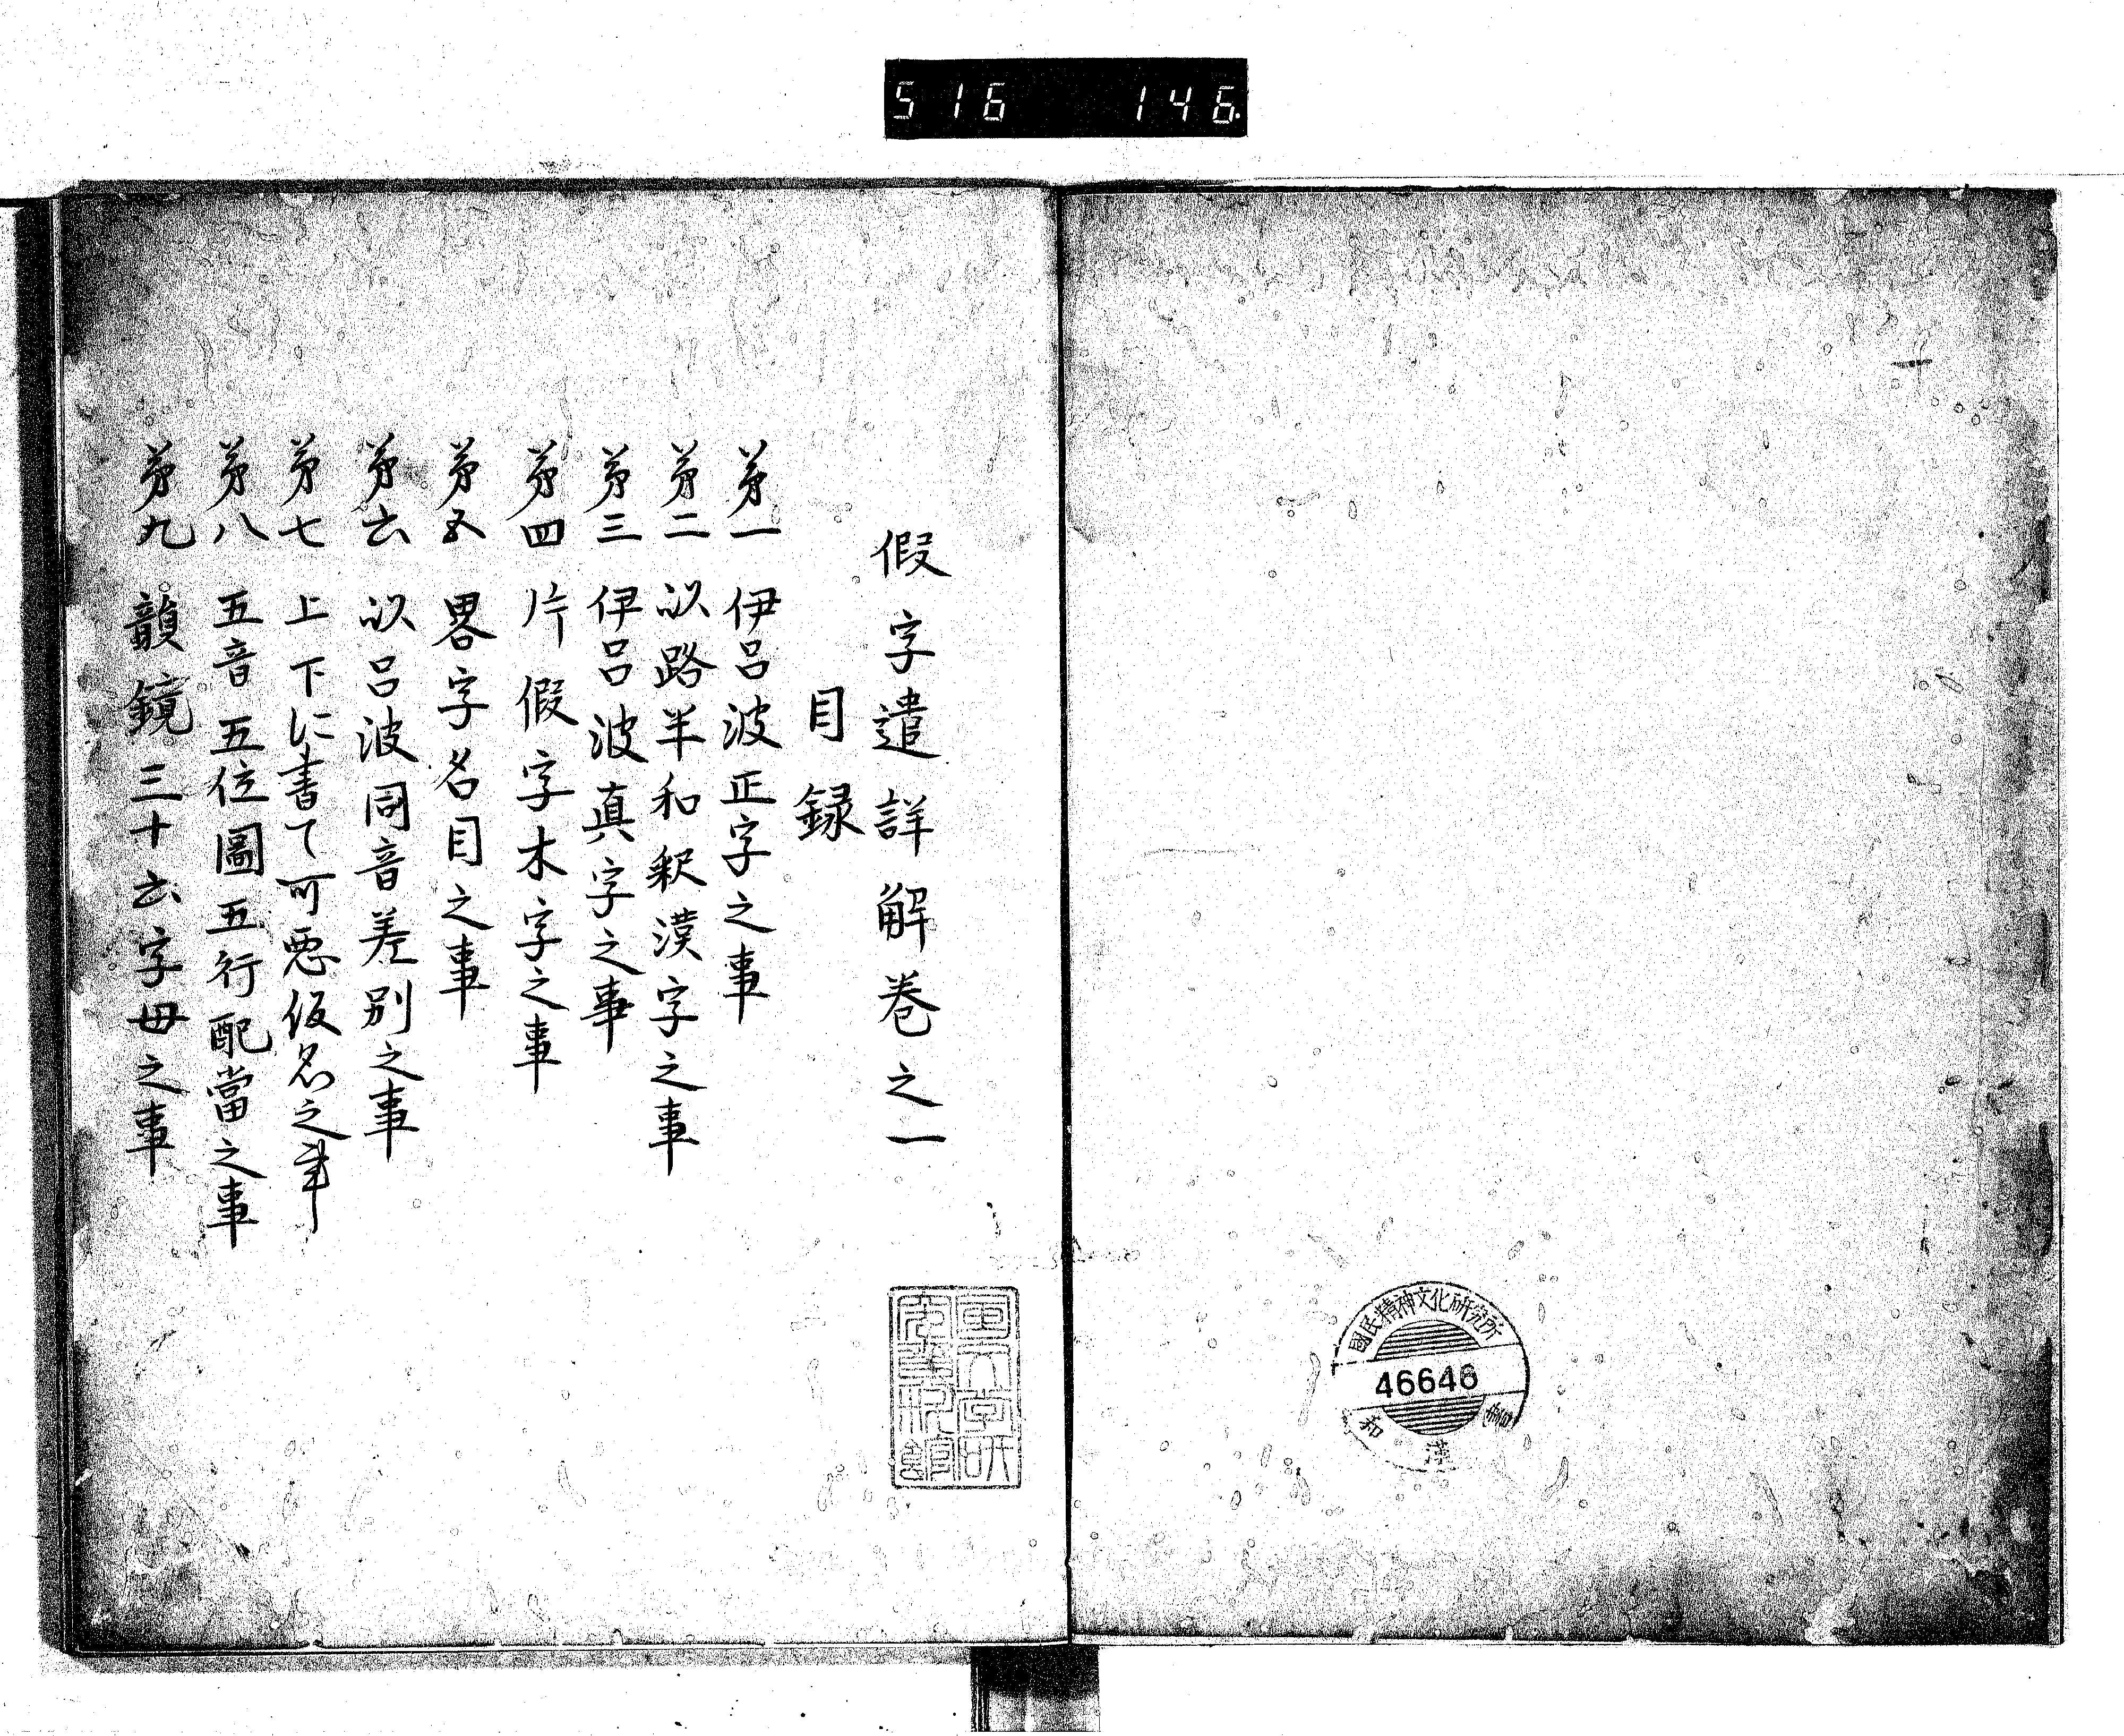 516 146
國民精神文化研究所
46646
和漢書
假字遣詳解巻之一
目録
第一 伊呂波正字之事
第二 以路半和釈漢字之事
第三 伊呂波真字之事
第四 片假字木字之事
第五 畧字名目之事
第六 以呂波同音差別之事
第七 上下に書て可悪仮名之事
第八 五音五位圖五行配當之事
第九 韻鏡三十六字母之事